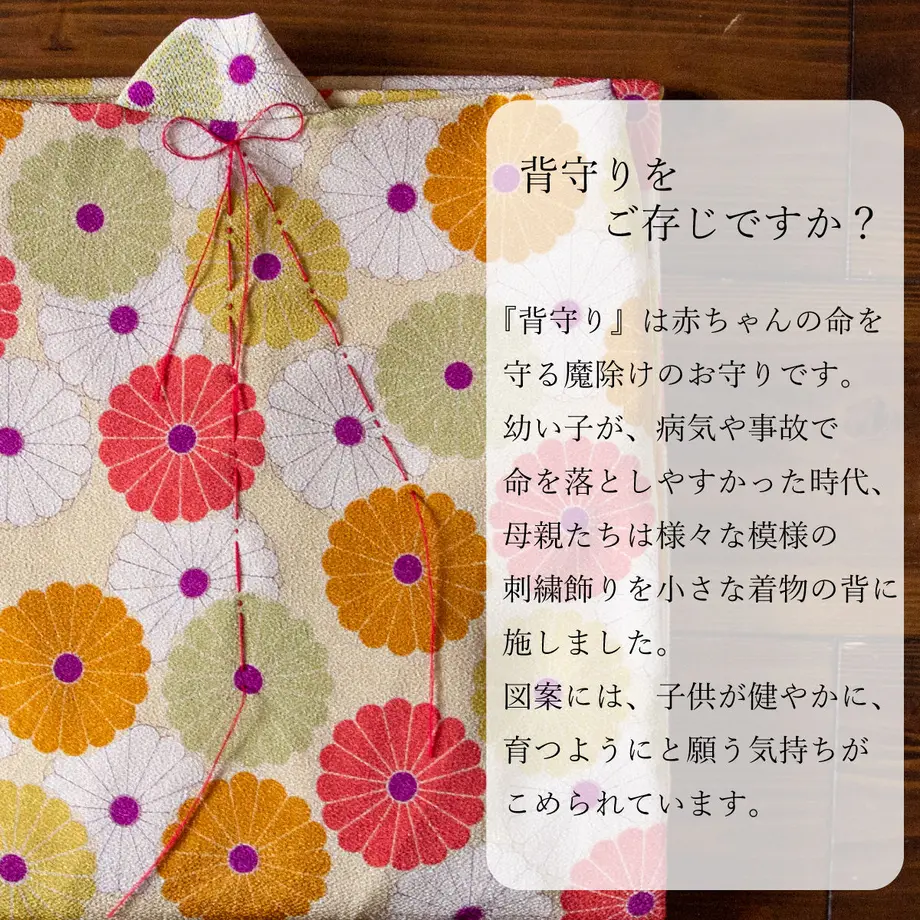 背守りを
ご存じですか？
『背守り』は赤ちゃんの命を
守る魔除けのお守りです。
幼い子が、病気や事故で
命を落としやすかった時代、
母親たちは様々な模様の
刺繍飾りを小さな着物の背に
施しました。
図案には、子供が健やかに、
育つようにと願う気持ちが
こめられています。